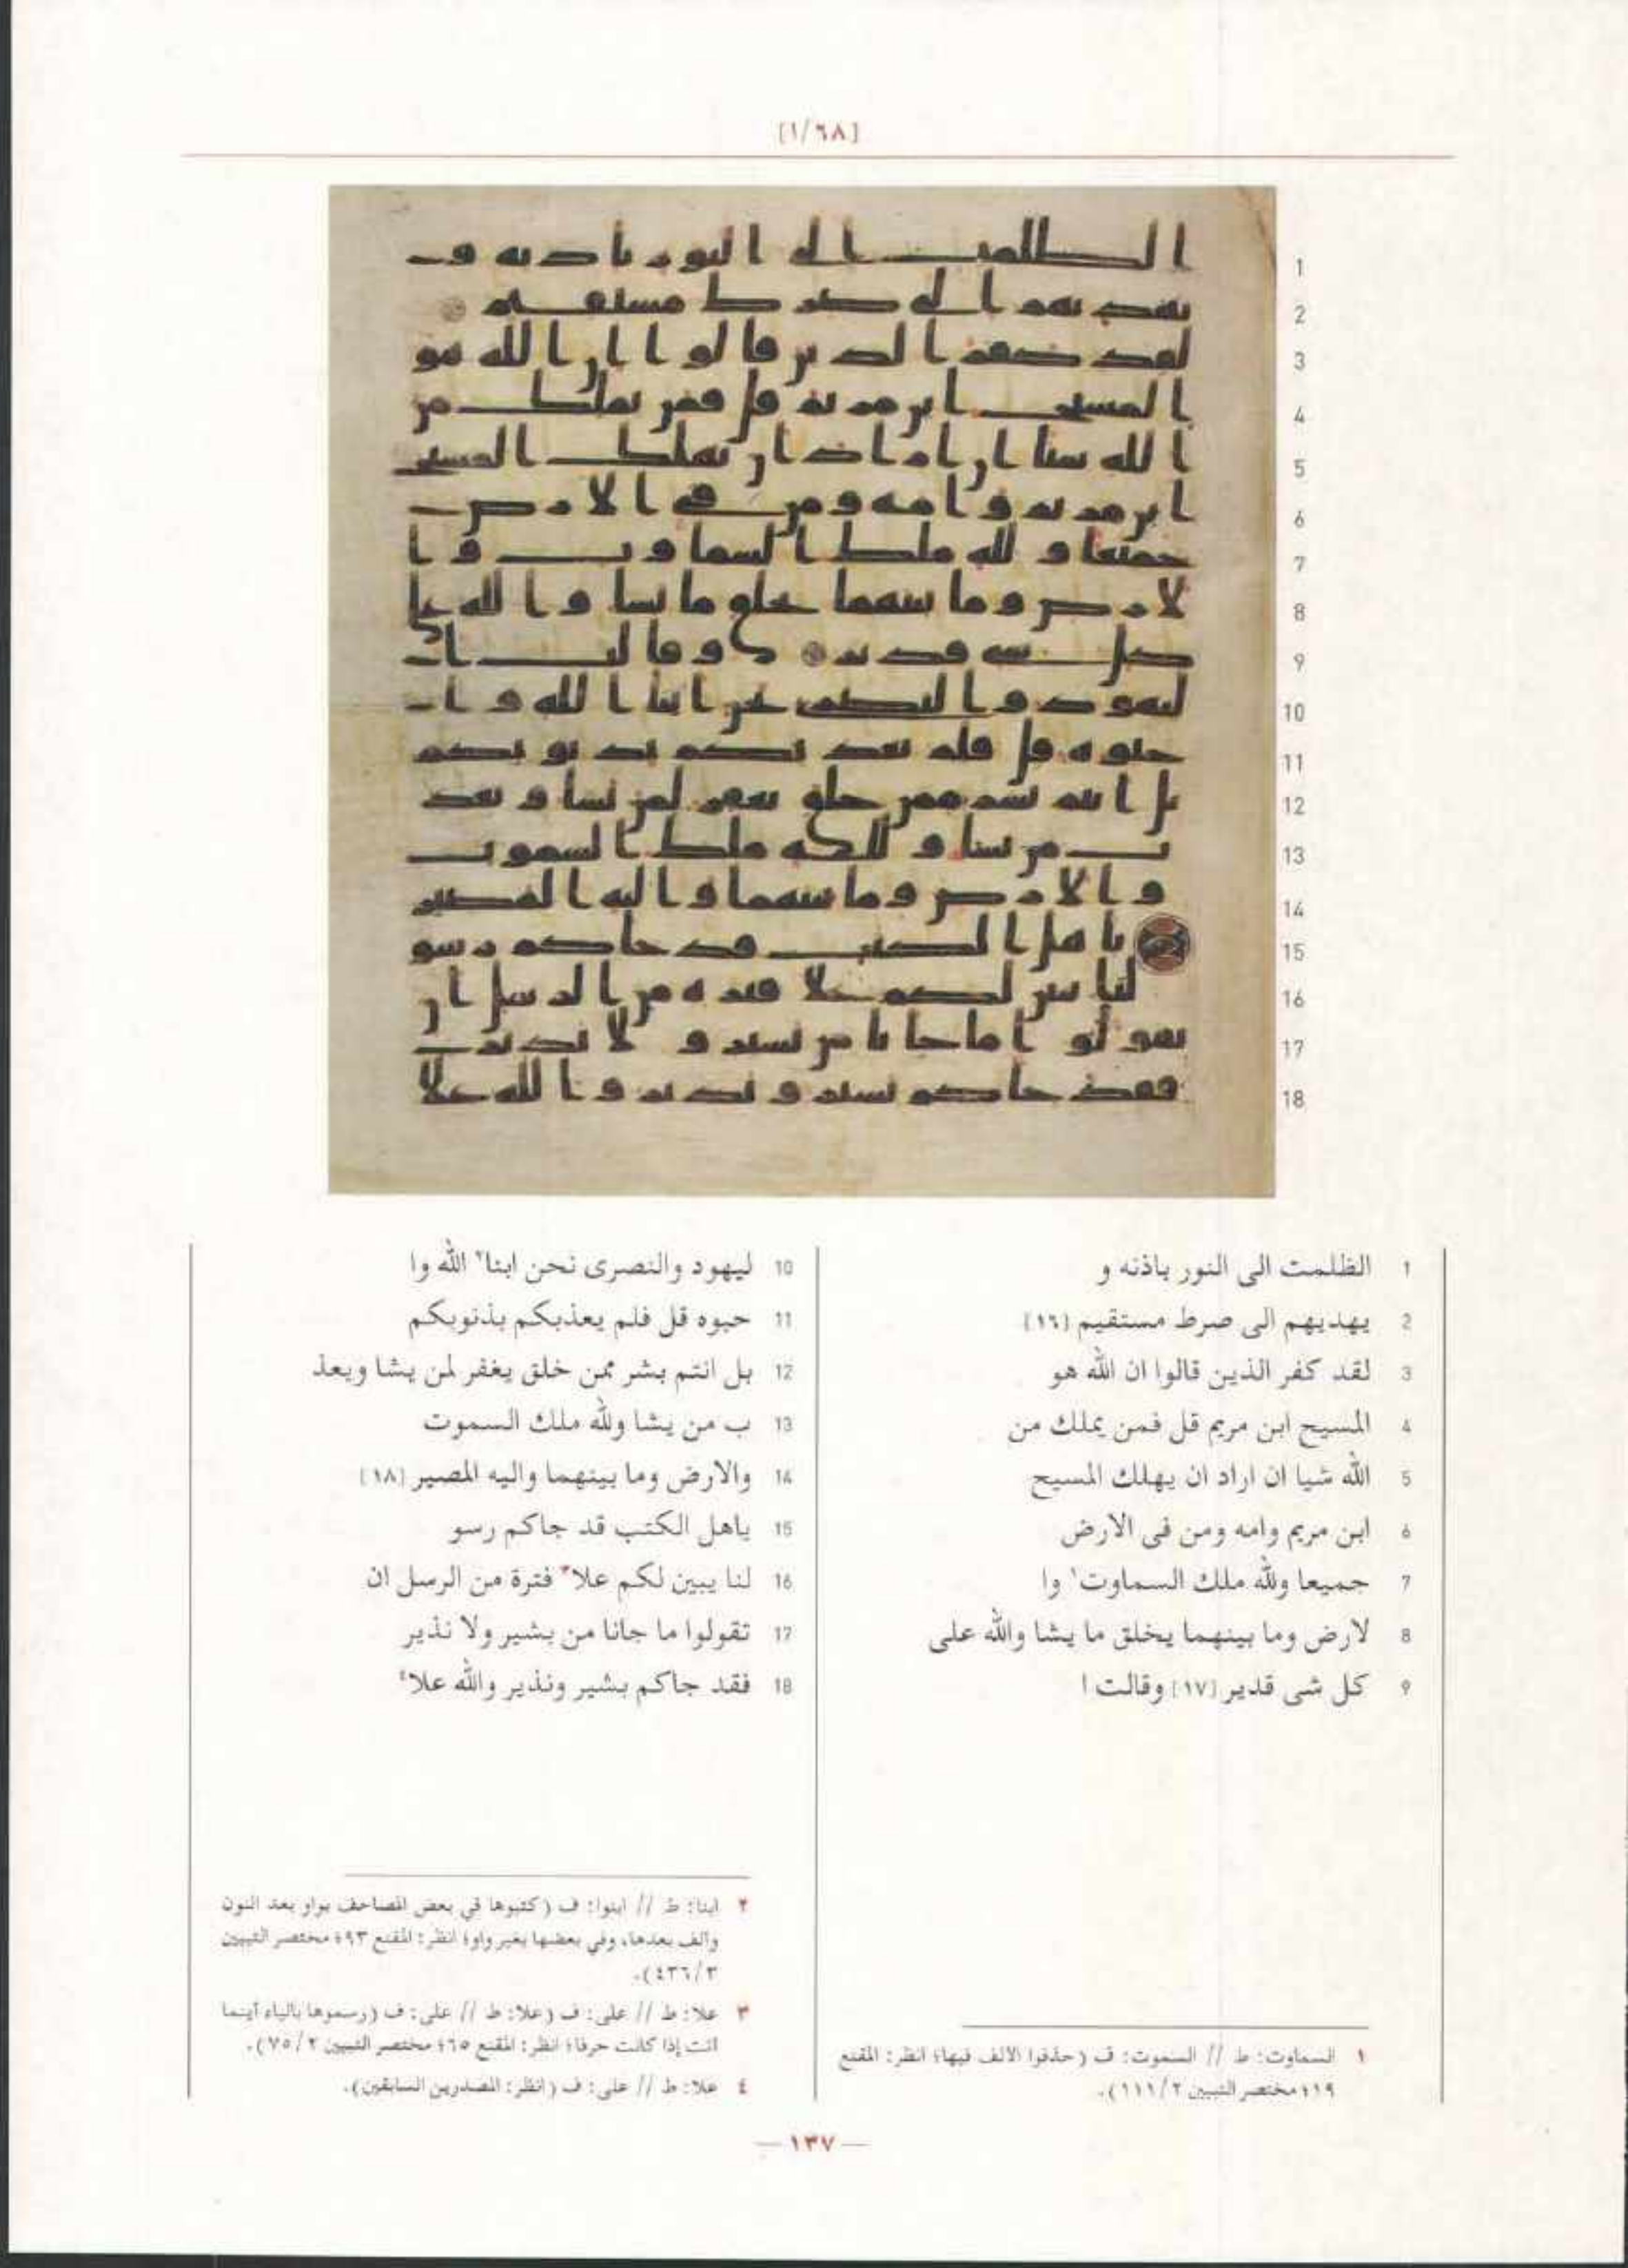 [١/٦٨]
1 الظلمت الى النور باذنه و
2 يهديهم الى صرط مستقيم [١٦]
3 لقد كفر الذين قالوا ان الله هو
4 المسيح ابن مريم قل فمن يملك من
5 الله شيا ان اراد ان يهلك المسيح
6 ابن مريم وامه ومن فى الارض
7 جميعا ولله ملك السماوت١ وا
8 لارض وما بينهما يخلق ما يشا والله على
9 كل شى قدير [١٧] وقالت ا
10 ليهود والنصرى نحن ابنا٢ الله وا
11 حبوه قل فلم يعذبكم بذنوبكم
12 بل انتم بشر ممن خلق يغفر لمن يشا ويعذ
13 ب من يشا ولله ملك السموت
14 والارض وما بينهما واليه المصير [١٨]
15 ياهل الكتب قد جاكم رسو
16 لنا يبين لكم علا٣ فترة من الرسل ان
17 تقولوا ما جانا من بشير ولا نذير
18 فقد جاكم بشير ونذير والله علا٤
١ السماوت: ط // السموت: ف (حذفوا الالف فيها؛ انظر: المقنع
١٩؛ مختصر التبيين ١١١/٢).
٢ ابنا: ط // ابنوا: ف (كتبوها في بعض المصاحف بواو بعد النون
والف بعدها، وفي بعضها بغير واو؛ انظر: المقنع ٩٣؛ مختصر التبيين
٤٣٦/٣).
٣ علا: ط // على: ف (علا: ط // على: ف (رسموها بالياء أينما
اتت إذا كانت حرفا؛ انظر: المقنع ٦٥؛ مختصر التبيين ٧٥/٢).
٤ علا: ط // على: ف (انظر: المصدرين السابقين).
— ١٣٧ —